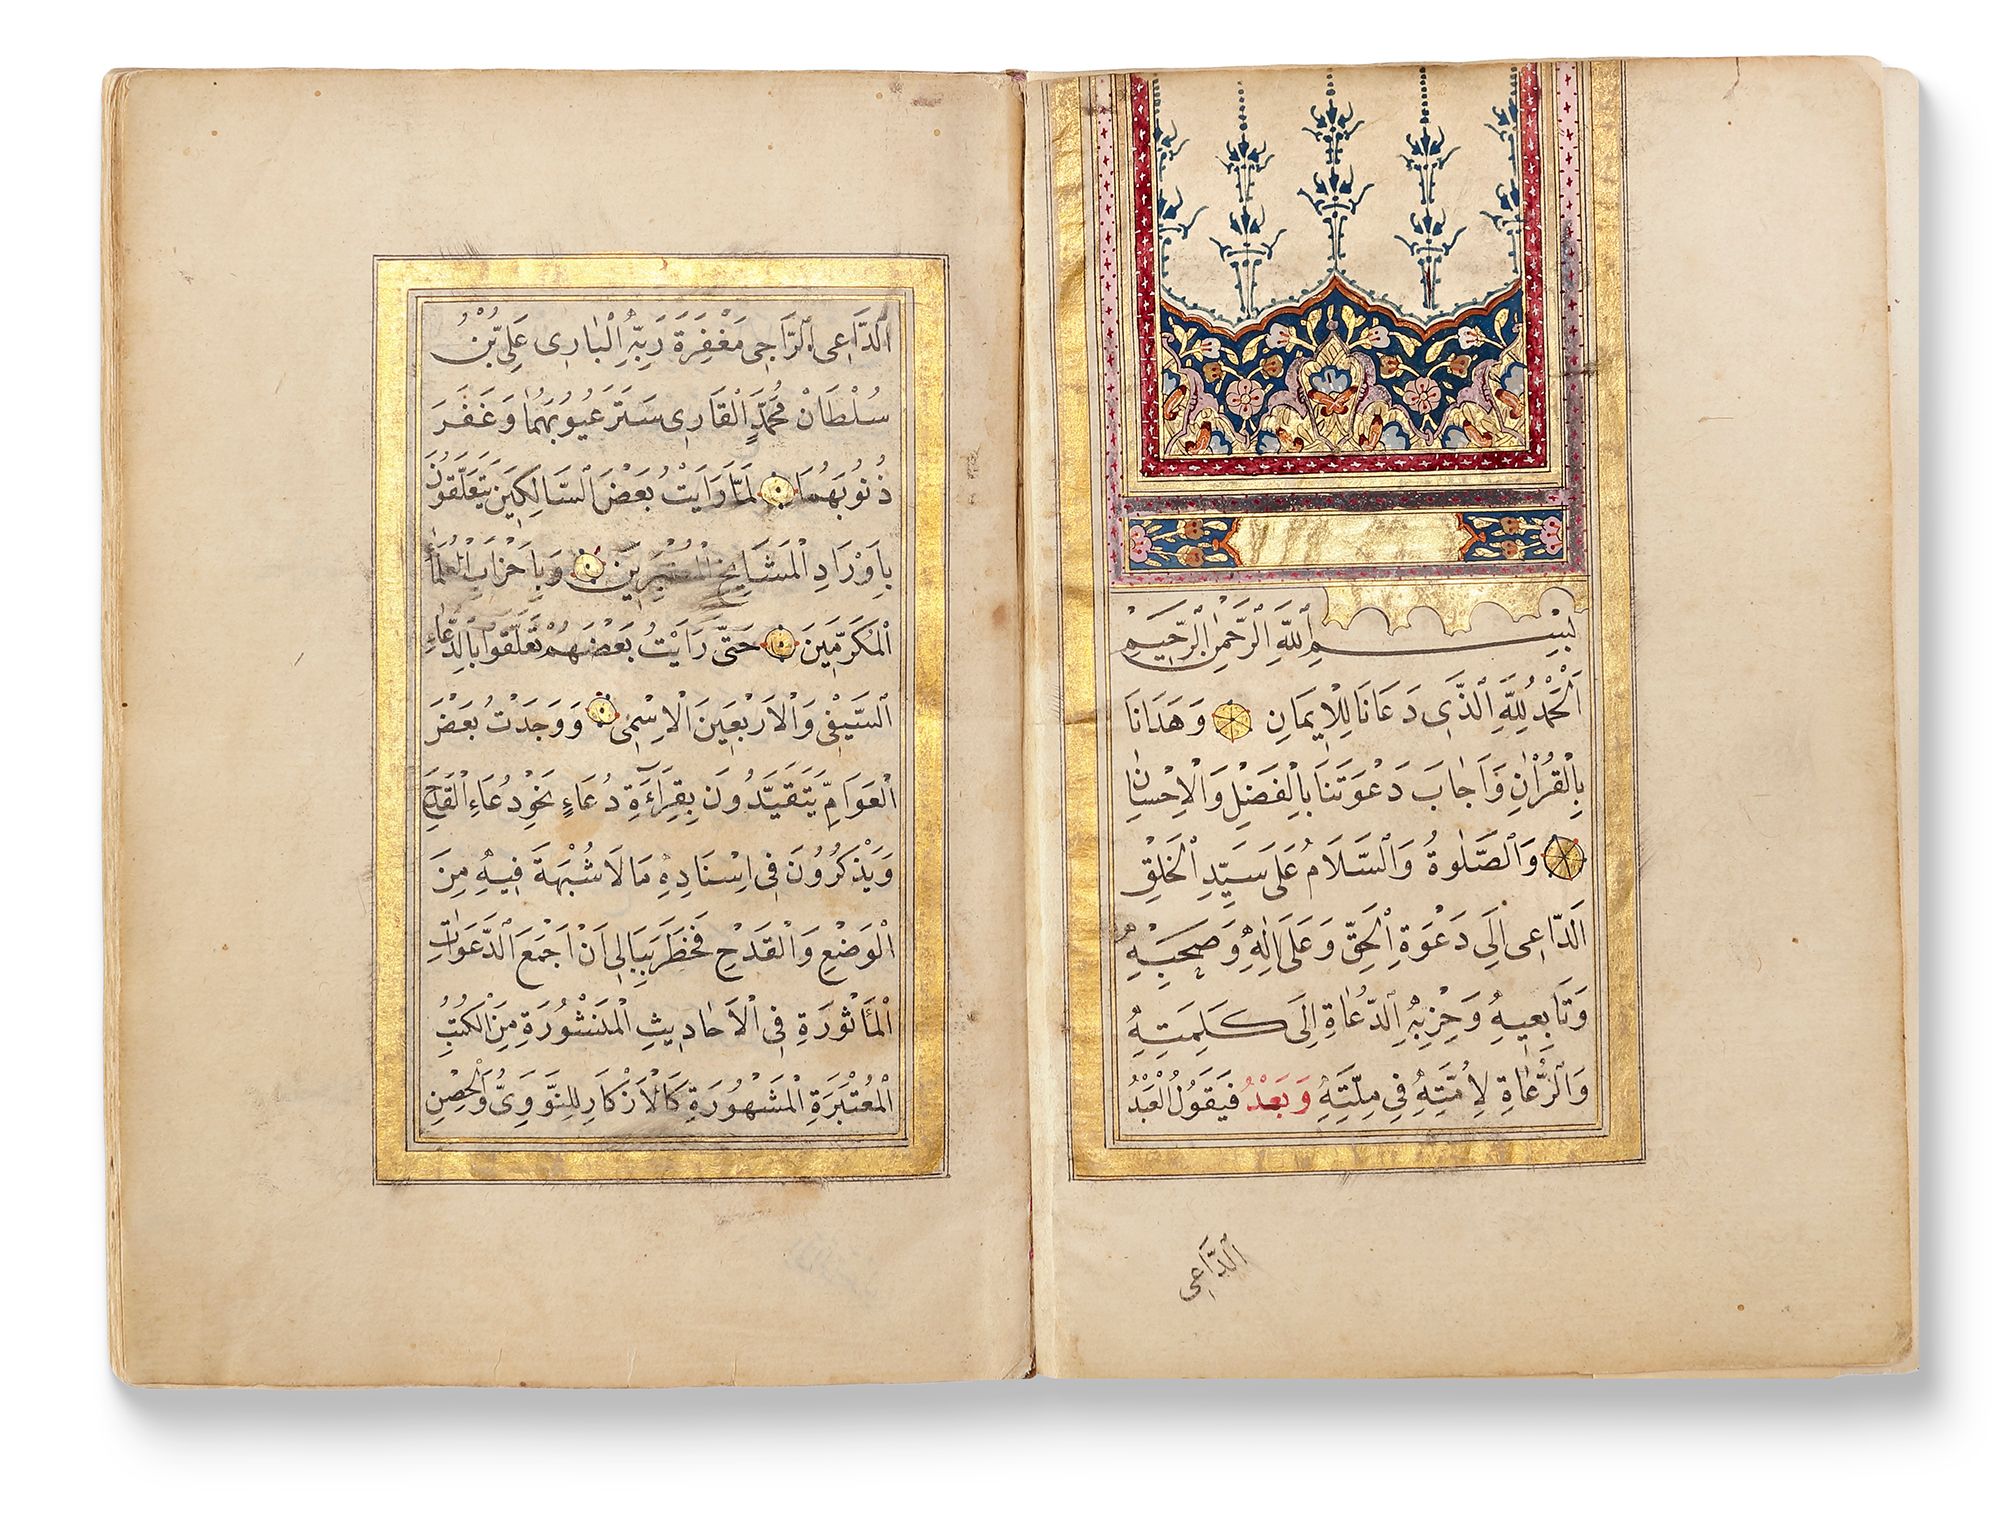 بِسْمِ اللّٰهِ الرَّحْمٰنِ الرَّحِيمِ
اَلْحَمْدُ لِلّٰهِ الَّذِى دَعَانَا لِلْاِيمَانِ وَهَدَانَا
بِالْقُرْاٰنِ وَاَجَابَ دَعْوَتَنَا بِالْفَضْلِ وَالْاِحْسَانِ
وَالصَّلٰوةُ وَالسَّلَامُ عَلَى سَيِّدِ الْخَلْقِ
اَلدَّاعِى اِلَى دَعْوَةِ الْحَقِّ وَعَلَى اٰلِهِ وَصَحْبِهِ
وَتَابِعِيهِ وَحِزْبِهِ الدُّعَاةِ اِلَى كَلِمَتِهِ
وَالرُّعَاةِ لِاُمَّتِهِ فِى مِلَّتِهِ وَبَعْدُ فَيَقُولُ الْعَبْدُ
الدَّاعِى
الدَّاعِى الرَّاجِى مَغْفِرَةَ رَبِّهِ الْبَارِى عَلِىُّ بْنُ
سُلْطَانْ مُحَمَّدٍ الْقَارِى سَتَرَ عُيُوبَهُمَا وَغَفَرَ
ذُنُوبَهُمَا لَمَّا رَاَيْتُ بَعْضَ السَّالِكِينَ يَتَعَلَّقُونَ
بِاَوْرَادِ الْمَشَايِخِ الْمُعْتَبَرِينَ وَبِاَحْزَابِ الْعُلَمَاءِ
الْمُكَرَّمِينَ حَتَّى رَاَيْتُ بَعْضَهُمْ تَعَلَّقُوا بِالدُّعَاءِ
السَّيْفِى وَالْاَرْبَعِينَ الْاِسْمِى وَوَجَدْتُ بَعْضَ
الْعَوَامِّ يَتَقَيَّدُونَ بِقِرَاءَةِ دُعَاءٍ نَحْوِ دُعَاءِ الْقَدَحِ
وَيَذْكُرُونَ فِى اِسْنَادِهِ مَا لَا شُبْهَةَ فِيهِ مِنَ
الْوَضْعِ وَالْقَدْحِ فَخَطَرَ بِبَالِى اَنْ اَجْمَعَ الدَّعَوَاتِ
الْمَأْثُورَةِ فِى الْاَحَادِيثِ الْمَنْشُورَةِ مِنَ الْكُتُبِ
الْمُعْتَبَرَةِ الْمَشْهُورَةِ كَالْاَذْكَارِ لِلنَّوَوِىِّ وَالْحِصْنِ